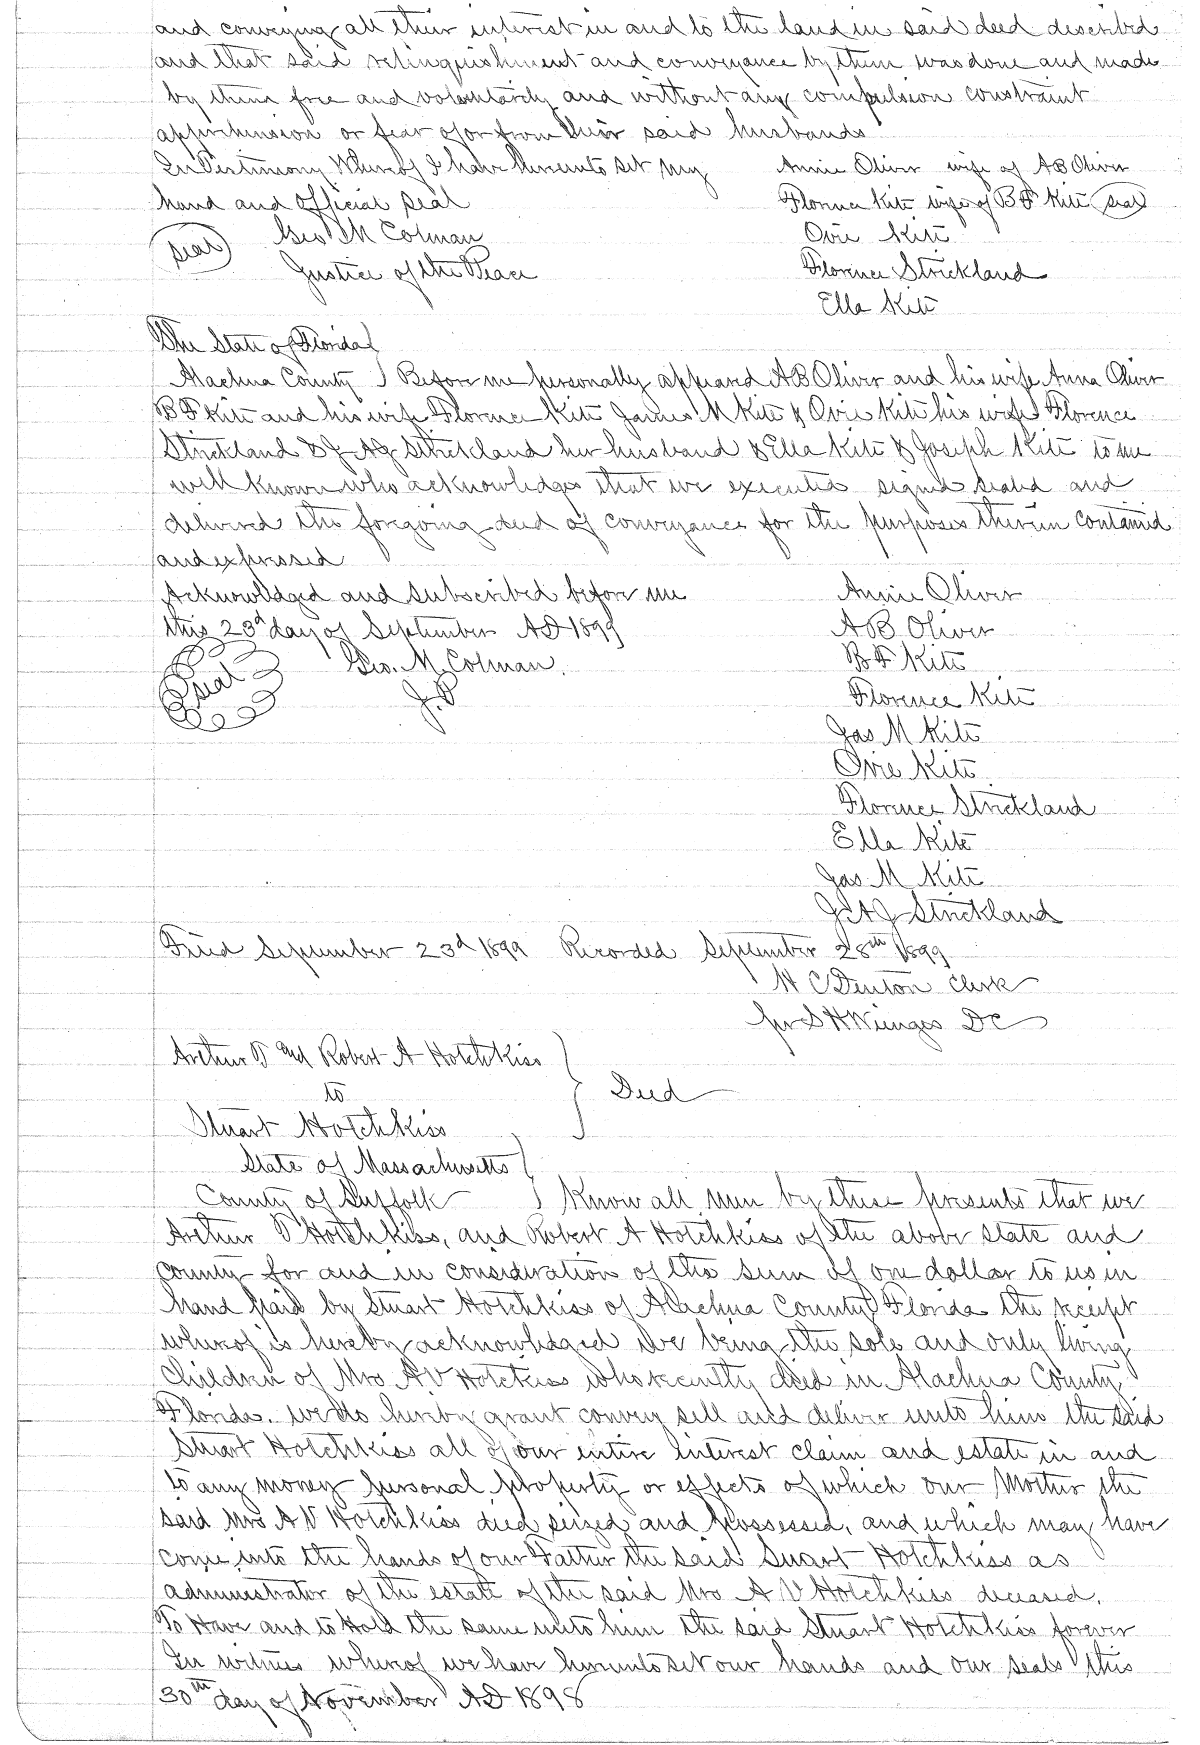 and conveying all their interest in and to the land in said deed described
and that said relinquishment and conveyance by them was done and made
by them free and voluntarily and without any compulsion constraint
apprehension or fear of or from their said husbands
In Testimony Whereof I have hereunto set my
hand and official seal
Seal
Geo M Colman
Justice of the Peace
Annie Oliver wife of AB Oliver
Florence Kite wife of B F Kite Seal
Ovie Kite
Florence Strickland
Ella Kite
The State of Florida
Alachua County Before me personally appeared AB Oliver and his wife Anna Oliver
B F Kite and his wife Florence Kite James M Kite & Ovie Kite his wife Florence
Strickland & J A J Strickland her husband & Ella Kite & Joseph Kite to me
well known who acknowledges that we executed signed sealed and
delivered the forgoing deed of conveyance for the purposes therein contained
and expressed
Acknowledged and subscribed before me
this 23d day of September AD 1899
Seal
Geo. M. Colman
J.P
Annie Oliver
AB Oliver
B F Kite
Florence Kite
Jas M Kite
Ovie Kite
Florence Strickland
Ella Kite
Jas M Kite
J A J Strickland
Filed September 23d 1899 Recorded September 28th 1899
H C Denton Clerk
per S H Wienges DC
Arthur T and Robert A Hotchkiss
to
Stuart Hotchkiss
Deed
State of Massachusetts
County of Suffolk Know all men by these presents that we
Arthur T Hotchkiss, and Robert A Hotchkiss of the above state and
county for and in consideration of the sum of one dollar to us in
hand paid by Stuart Hotchkiss of Alachua County Florida the receipt
whereof is hereby acknowledged we being the sole and only living
Children of Mrs A V Hotckiss who recently died in Alachua County
Florida. we do hereby grant convey sell and deliver unto him the said
Stuart Hotchkiss all of our entire interest claim and estate in and
to any money personal property or effects of which our Mother the
said Mrs A V Hotchkiss died seized and possessed, and which may have
come into the hands of our Father the said Stuart Hotchkiss as
administrator of the estate of the said Mrs A V Hotchkiss deceased.
To Have and to Hold the same unto him the said Stuart Hotchkiss forever
In witness whereof we have hereunto set our hands and our seals this
30th day of November AD 1898